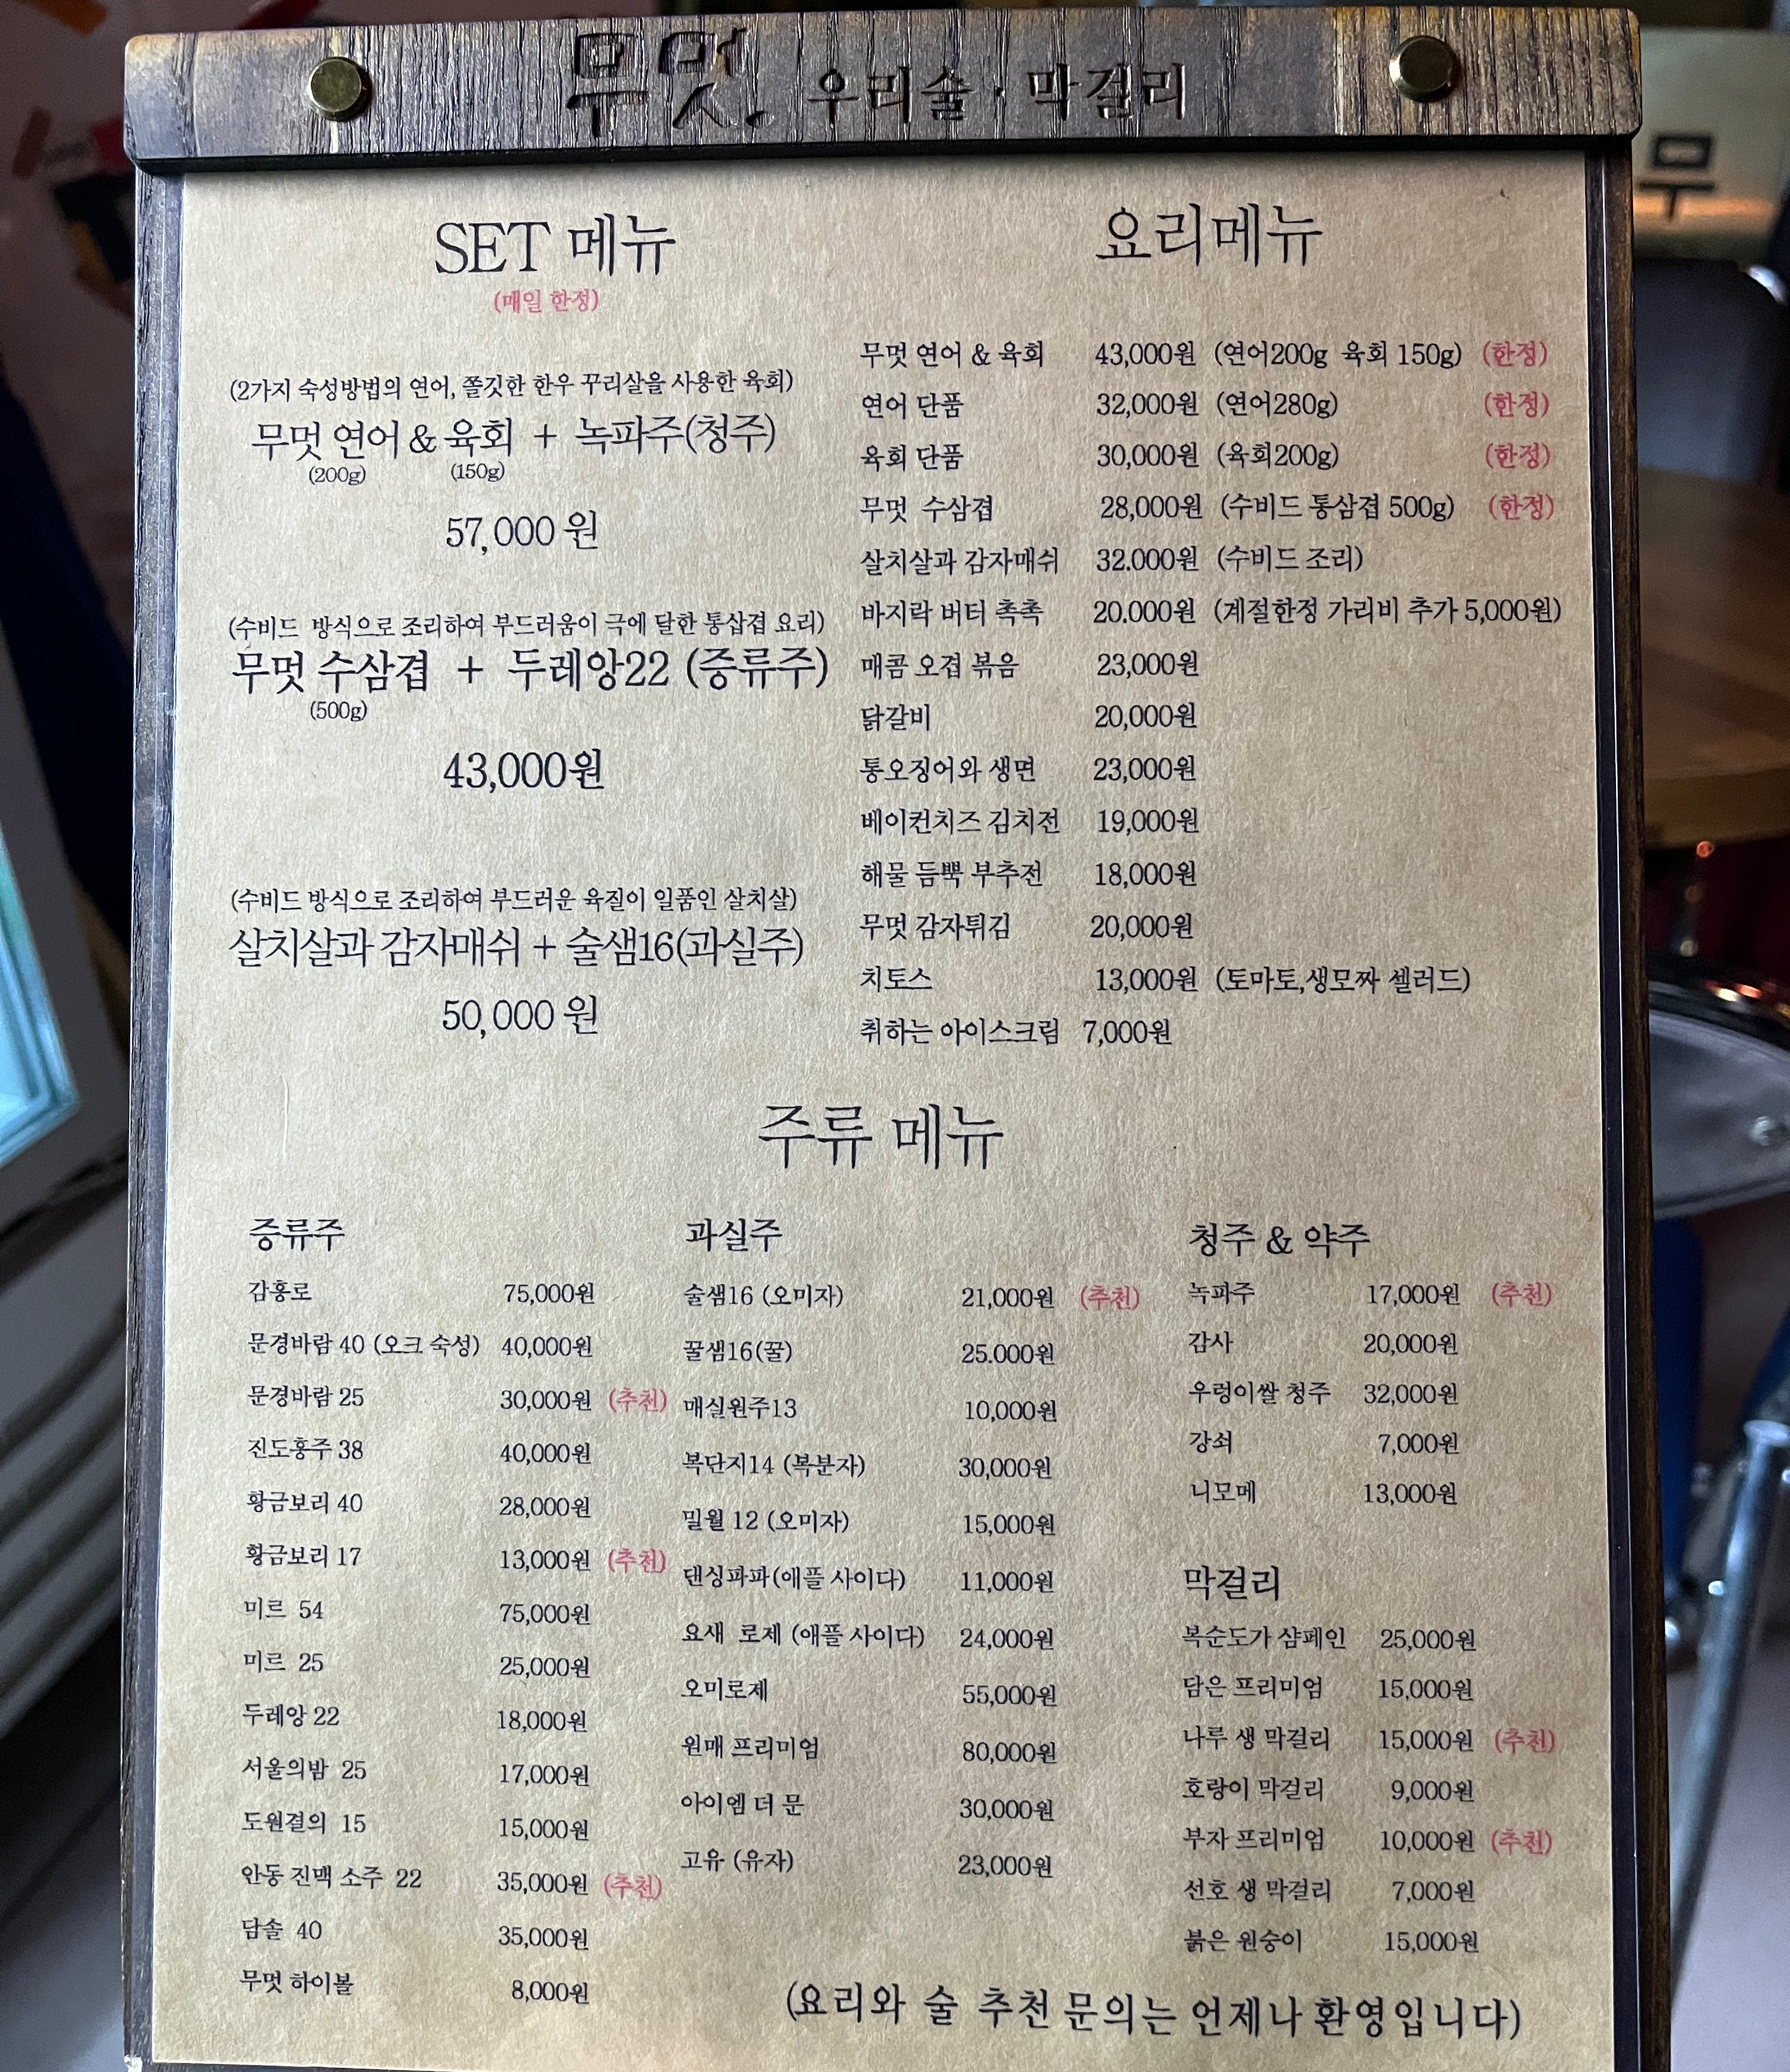 무멋. 우리술·막걸리
무
SET 메뉴
(매일 한정)
(2가지 숙성방법의 연어, 쫄깃한 한우 꾸리살을 사용한 육회)
무멋 연어 & 육회 + 녹파주(청주)
(200g) (150g)
57,000 원
(수비드 방식으로 조리하여 부드러움이 극에 달한 통삽겹 요리)
무멋 수삼겹 + 두레앙22 (증류주)
(500g)
43,000원
(수비드 방식으로 조리하여 부드러운 육질이 일품인 살치살)
살치살과 감자매쉬 + 술샘16(과실주)
50,000 원
요리메뉴
무멋 연어 & 육회 43,000원 (연어200g 육회 150g) (한정)
연어 단품 32,000원 (연어280g) (한정)
육회 단품 30,000원 (육회200g) (한정)
무멋 수삼겹 28,000원 (수비드 통삼겹 500g) (한정)
살치살과 감자매쉬 32.000원 (수비드 조리)
바지락 버터 촉촉 20.000원 (계절한정 가리비 추가 5,000원)
매콤 오겹 볶음 23,000원
닭갈비 20,000원
통오징어와 생면 23,000원
베이컨치즈 김치전 19,000원
해물 듬뿍 부추전 18,000원
무멋 감자튀김 20,000원
치토스 13,000원 (토마토,생모짜 셀러드)
취하는 아이스크림 7,000원
주류 메뉴
증류주
감홍로 75,000원
문경바람 40 (오크 숙성) 40,000원
문경바람 25 30,000원 (추천)
진도홍주 38 40,000원
황금보리 40 28,000원
황금보리 17 13,000원 (추천)
미르 54 75,000원
미르 25 25,000원
두레앙 22 18,000원
서울의밤 25 17,000원
도원결의 15 15,000원
안동 진맥 소주 22 35,000원 (추천)
담솔 40 35,000원
무멋 하이볼 8,000원
과실주
술샘16 (오미자) 21,000원 (추천)
꿀샘16(꿀) 25.000원
매실원주13 10,000원
복단지14 (복분자) 30,000원
밀월 12 (오미자) 15,000원
댄싱파파(애플 사이다) 11,000원
요새 로제 (애플 사이다) 24,000원
오미로제 55,000원
원매 프리미엄 80,000원
아이엠 더 문 30,000원
고유 (유자) 23,000원
청주 & 약주
녹파주 17,000원 (추천)
감사 20,000원
우렁이쌀 청주 32,000원
강쇠 7,000원
니모메 13,000원
막걸리
복순도가 샴페인 25,000원
담은 프리미엄 15,000원
나루 생 막걸리 15,000원 (추천)
호랑이 막걸리 9,000원
부자 프리미엄 10,000원 (추천)
선호 생 막걸리 7,000원
붉은 원숭이 15,000원
(요리와 술 추천 문의는 언제나 환영입니다)